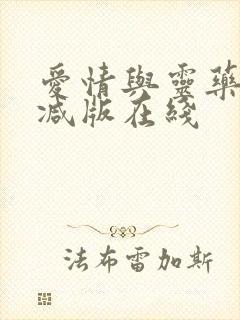 愛情與靈藥
减版在綫
法布雷加斯